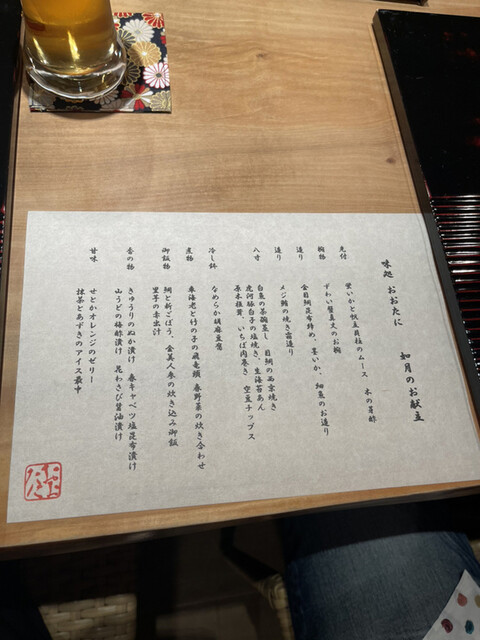 味処 おおたに 如月のお献立
先付 蛍いかと帆立貝柱のムース 木の芽酢
椀物 ずわい蟹真丈のお椀
造り 金目鯛昆布締め、墨いか、細魚のお造り
造り メジ鮪の焼き霜造り
八寸 白魚の茶碗蒸し 目鯛の西京焼き
虎河豚白子の塩焼き、生海苔あん
原木椎茸、いちぼ肉巻き 空豆チップス
冷し鉢 なめらか胡麻豆腐
煮物 車海老と竹の子の飛竜頭 春野菜の炊き合わせ
御飯物 鯛と新ごぼう、金美人参の炊き込み御飯
里芋の赤出汁
香の物 きゅうりのぬか漬け 春キャベツ塩昆布漬け
山うどの梅酢漬け 花わさび醤油漬け
甘味 せとかオレンジのゼリー
抹茶とあずきのアイス最中